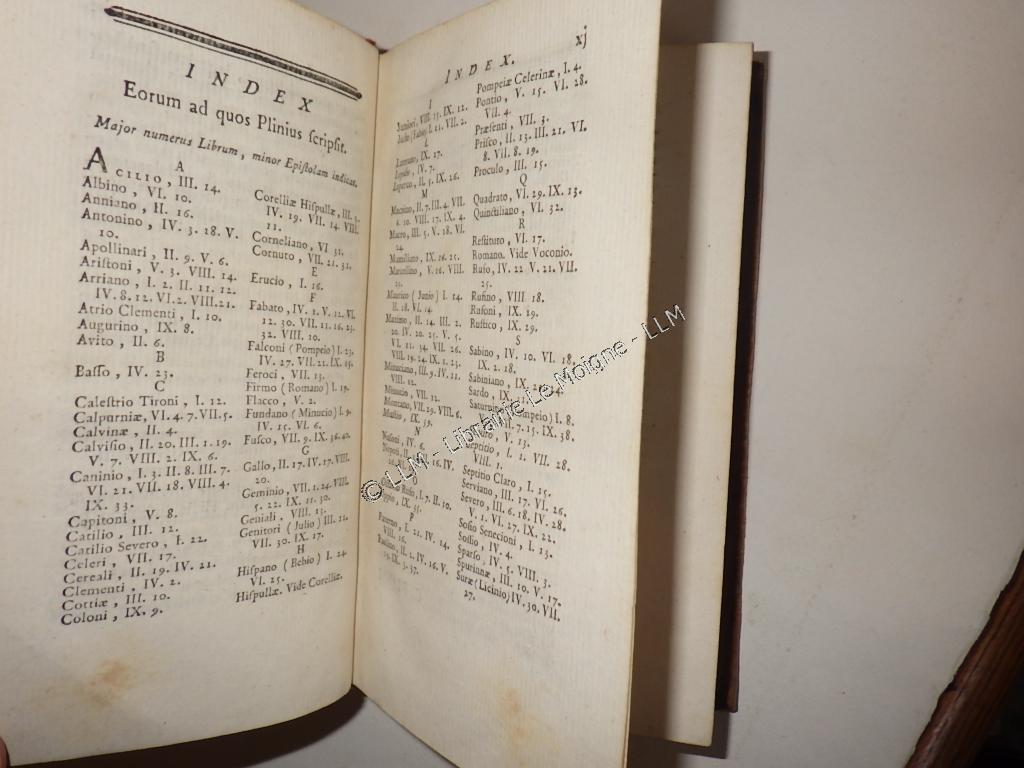 INDEX
Eorum ad quos Plinius ſcripſit.
Major numerus Librum, minor Epiſtolam indicat.
A
ACILIO, III. 14.
Albino, VI. 10.
Anniano, II. 16.
Antonino, IV. 3. 18. V.
10.
Apollinari, II. 9. V. 6.
Ariſtoni, V. 3. VIII. 14.
Arriano, I. 2. II. 11. 12.
IV. 8. 12. VI. 2. VIII. 21.
Atrio Clementi, I. 10.
Augurino, IX. 8.
Avito, II. 6.
B
Baſſo, IV. 23.
C
Caleſtrio Tironi, I. 12.
Calpurniæ, VI. 4. 7. VII. 5.
Calvinæ, II. 4.
Calviſio, II. 20. III. 1. 19.
V. 7. VIII. 2. IX. 6.
Caninio, I. 3. II. 8. III. 7.
VI. 21. VII. 18. VIII. 4.
IX. 33.
Capitoni, V. 8.
Catilio, III. 12.
Catilio Severo, I. 22.
Celeri, VII. 17.
Cereali, II. 19. IV. 21.
Clementi, IV. 2.
Cottiæ, III. 10.
Coloni, IX. 9.
Corelliæ Hiſpullæ, III. 3.
IV. 19. VII. 14. VIII.
11.
Corneliano, VI 31.
Cornuto, VII. 21. 31.
E
Erucio, I. 16.
F
Fabato, IV. 1. V. 12. VI.
12. 30. VII. 11. 16. 23.
32. VIII. 10.
Falconi (Pompeio) I. 23.
IV. 27. VII. 21. IX. 15.
Feroci, VII. 13.
Firmo (Romano) I. 19.
Flacco, V. 2.
Fundano (Minucio) I. 9.
IV. 15. VI. 6.
Fuſco, VII. 9. IX. 36. 40.
G
Gallo, II. 17. IV. 17. VIII.
20.
Geminio, VII. 1. 24. VIII.
5. 22. IX. 11. 30.
Geniali, VIII. 13.
Genitori (Julio) III. 11.
VII. 30. IX. 17.
H
Hiſpano (Bebio) I. 24.
VI. 25.
Hiſpullæ. Vide Corelliæ.
INDEX.
xj
I
Juniori, VIII. 15. IX. 12.
Juſto (Fabio) I. 11. VII. 2.
L
IX. 17.
IV. 7.
Luperco, II. 5. IX. 26.
M
Macrino, II. 7. III. 4. VII.
10. VIII. 17. IX. 4.
Macro, III. 5. V. 18. VI.
24.
Mamiliano, IX. 16. 25.
Marcellino, V. 16. VIII.
23.
Maurico (Junio) I. 14.
II. 18. VI. 14.
Maximo, II. 14. III. 2.
20. IV. 20. 25. V. 5.
VI. 11. 34. VII. 26.
VIII. 19. 24. IX. 1. 23.
Minuciano, III. 9. IV. 11.
VIII. 12.
Minucio, VII. 12.
Montano, VII. 29. VIII. 6.
Muſtio, IX. 39.
N
Naſoni, IV. 6.
Nepoti, II.
16. IV.
Rufo, I. 7. II. 10.
IX. 35.
P
Paterno, I. 21. IV. 14.
VIII. 16.
Paulino, II. 2. IV. 16. V.
19. IX. 3. 37.
Pompeiæ Celerinæ, I. 4.
Pontio, V. 15. VI. 28.
VII. 4.
Præſenti, VII. 3.
Priſco, II. 13. III. 21. VI.
8. VII. 8. 19.
Proculo, III. 15.
Q
Quadrato, VI. 29. IX. 13.
Quinctiliano, VI. 32.
R
Reſtituto, VI. 17.
Romano. Vide Voconio.
Rufo, IV. 22 V. 21. VII.
25.
Rufino, VIII 18.
Ruſoni, IX. 19.
Ruſtico, IX. 29.
S
Sabino, IV. 10. VI. 18.
IX. 2. 18.
Sabiniano, IX. 24.
Sardo, IX. 31.
Saturnino (Pompeio) I. 8.
VII. 7. 15. IX. 38.
V. 13.
Septitio, I. 1. VII. 28.
VIII. 1.
Septitio Claro, I. 15.
Serviano, III. 17. VI. 26.
Severo, III. 6. 18. IV. 28.
V. 1. VI. 27. IX. 22.
Soſio Senecioni, I. 13.
Soſſio, IV. 4.
Sparſo, IV. 5. VIII. 3.
Spurinnæ, III. 10. V. 17.
Suræ (Licinio) IV. 30. VII.
27.
© LLM - Librairie Le Moigne - LLM